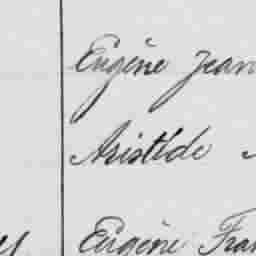 Eugène Jean
Aristide
Eugène Fran